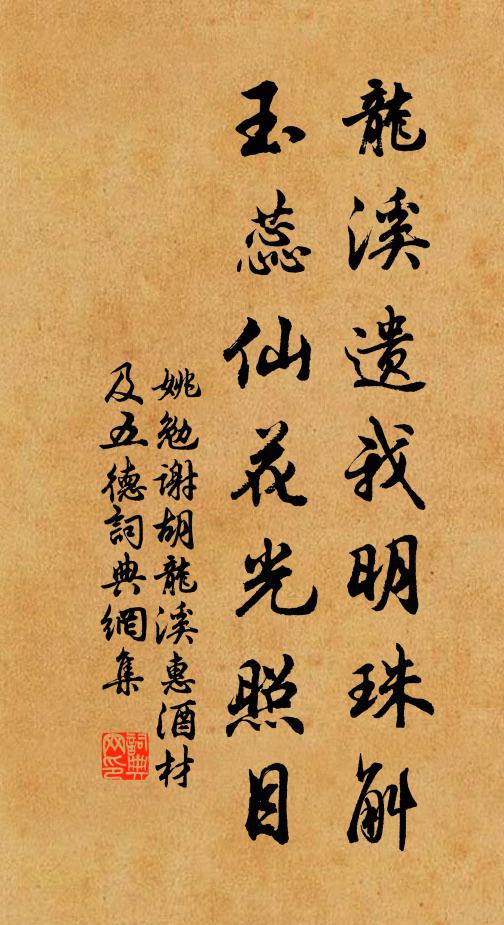 龍溪遺我明珠斛
玉蕊仙花光照目
姚勉謝胡龍溪惠酒材
及五德詞典網集
詞典網印